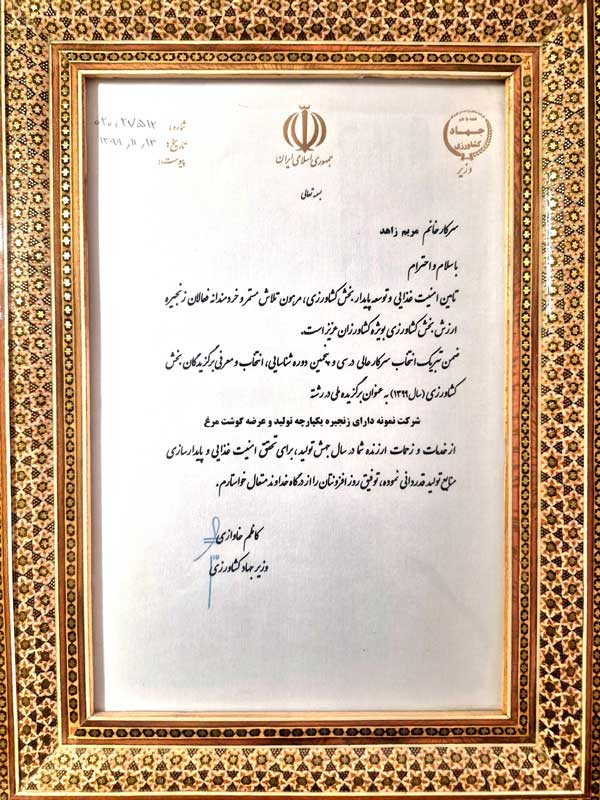 شماره: ۰۲۰/۲۷۵۱۲
تاریخ: ۱۳۹۹/۱۱/۱۳
پیوست:
جمهوری اسلامی ایران
جهاد
کشاورزی
وزیر
بسمه تعالی
سرکار خانم مریم زاهد
با سلام و احترام
تامین امنیت غذایی و توسعه پایدار بخش کشاورزی، مرهون تلاش مستمر و خردمندانه فعالان زنجیره
ارزش بخش کشاورزی بویژه کشاورزان عزیز است.
ضمن تبریک انتخاب سرکار عالی در سی و پنجمین دوره شناسایی، انتخاب و معرفی برگزیدگان بخش
کشاورزی (سال ۱۳۹۹) به عنوان برگزیده ملی در رشته
شرکت نمونه دارای زنجیره یکپارچه تولید و عرضه گوشت مرغ
از خدمات و زحمات ارزنده شما در سال جهش تولید، برای تحقق امنیت غذایی و پایدارسازی
منابع تولید قدردانی نموده، توفیق روز افزونتان را از درگاه خداوند متعال خواستارم.
کاظم خاوازی
وزیر جهاد کشاورزی